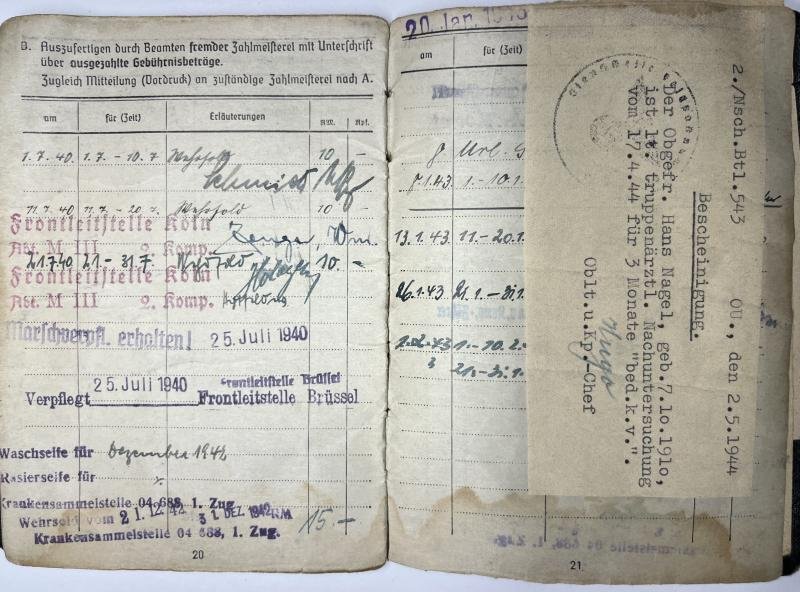 B. Auszufertigen durch Beamten fremder Zahlmeisterei mit Unterschrift
über ausgezahlte Gebührnisbeträge.
Zugleich Mitteilung (Vordruck) an zuständige Zahlmeisterei nach A.
am für (Zeit) Erläuterungen RM. Rpf.
1.7.40 1.7. - 10.7 Wehrsold 10 -
Schmidt
11.7.40 11.7. - 20.7. Wehrsold 10 -
Frontleitstelle Köln
Abt. M III 2. Komp.
21.7.40 21. - 31.7. Wehrsold 10. -
Frontleitstelle Köln
Abt. M III 2. Komp.
Marschverpfl. erhalten! 25. Juli 1940
25. Juli 1940 Frontleitstelle Brüssel
Verpflegt Frontleitstelle Brüssel
Waschseife für Dezember 1942
Rasierseife für
Krankensammelstelle 04 688, 1. Zug
Wehrsold vom 21.12.42 31. DEZ. 1942 RM 15.-
Krankensammelstelle 04 688, 1. Zug.
20
20. Jan. 1943
am für (Zeit)
1.1.43. 1. - 10.1.
13.1.43 11. - 20.1.
26.1.43 21.1. - 31.1.
1. - 10.2.
21. - 31.
04 688, 1. Zug.
21
2./Nsch.Btl.543 OU., den 2.5.1944
Bescheinigung.
Der Obgefr. Hans Nagel, geb.7.10.1910,
ist lt. truppenärztl. Nachuntersuchung
vom 17.4.44 für 3 Monate "bed.k.v.".
Oblt.u.Kp.-Chef
Dienststelle Feldpostnr.